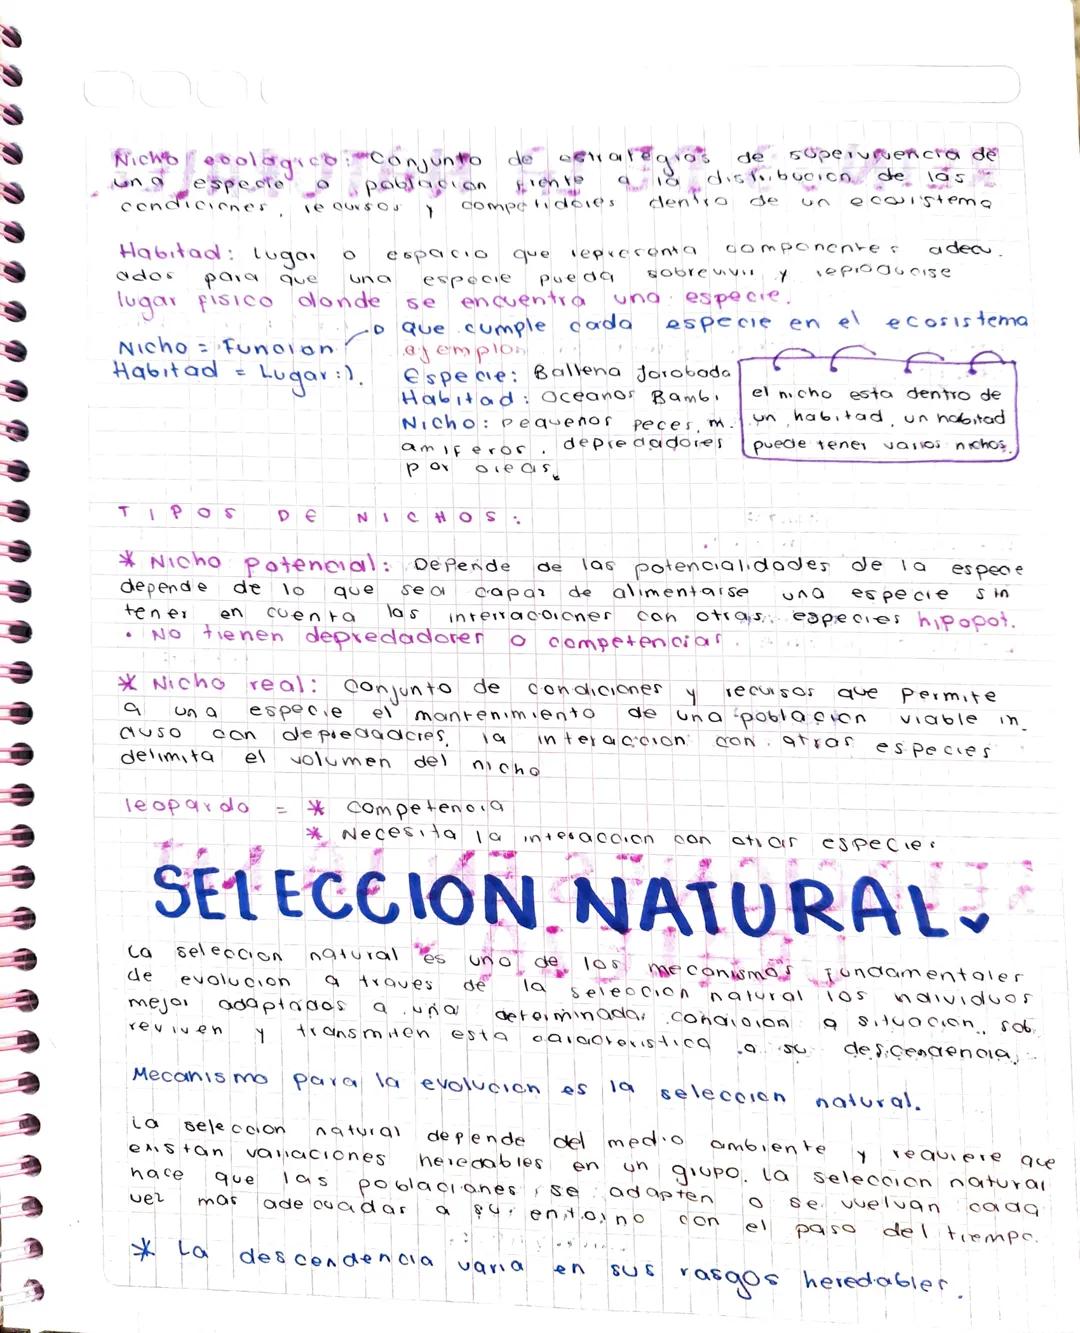 Nicho ecologico: Conjunto de estrategias de supervivencia de
una especie o poblacion frente a la distribucion de las
condiciones, recursos y competidores dentro de un ecosistema
Habitad: Lugar o espacio que representa componentes adecu.
ados para que una especie pueda sobrevivir y reproducirse
lugar fisico donde se encuentra una especie.
que cumple cada especie en el ecosistema
Nicho = Funcion
Habitad = Lugar :).
ejemplo:
Especie: Ballena Jorobada
Habitad: Oceanos Bambi
Nicho: Pequenos peces, m.
amiferos. depredadores
por areas
el nicho esta dentro de
un habitad, un habitad
puede tener varios nichos.
TIPOS DE NICHOS:
* Nicho potencial: Depende de las potencialidades de la especie
depende de lo que sea capaz de alimentarse una especie sin
tener en cuenta las interracciones con otras especies hipopot.
• No tienen depredadores o competencias.
* Nicho real: Conjunto de condiciones y recursos que permite
a una especie el mantenimiento de una poblacion viable in.
cluso con depredadores, la interaccion con otras especies
delimita el volumen del nicho
leopardo = * Competencia
* Necesita la interaccion con otras especies
SELECCION NATURAL
La seleccion natural es uno de los mecanismos fundamentales
de evolucion a traves de la seleccion natural los individuos
mejor adaptados a una determinada condicion a situacion, sob.
reviven y transmiten esta caracteristica a su descendencia.
Mecanismo para la evolucion es la seleccion natural.
La seleccion natural depende del medio ambiente y requiere que
existan variaciones heredables en un grupo. La seleccion natural
hace que las poblaciones se adapten o se vuelvan cada
vez mas adecuadas a su entorno con el paso del tiempo.
* La descendencia varia en sus rasgos heredables.